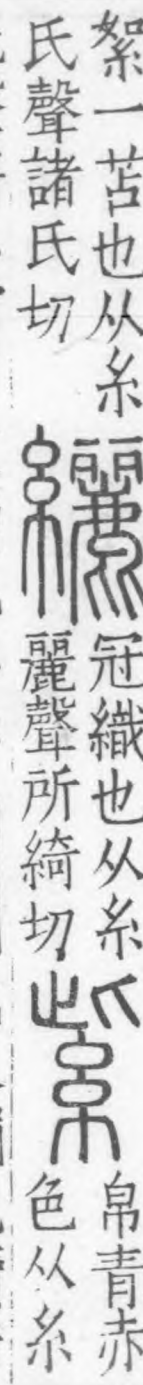 絮一苫也从糸
氏聲諸氏切
纚
冠織也从糸
麗聲所綺切
紫
帛青赤
色从糸